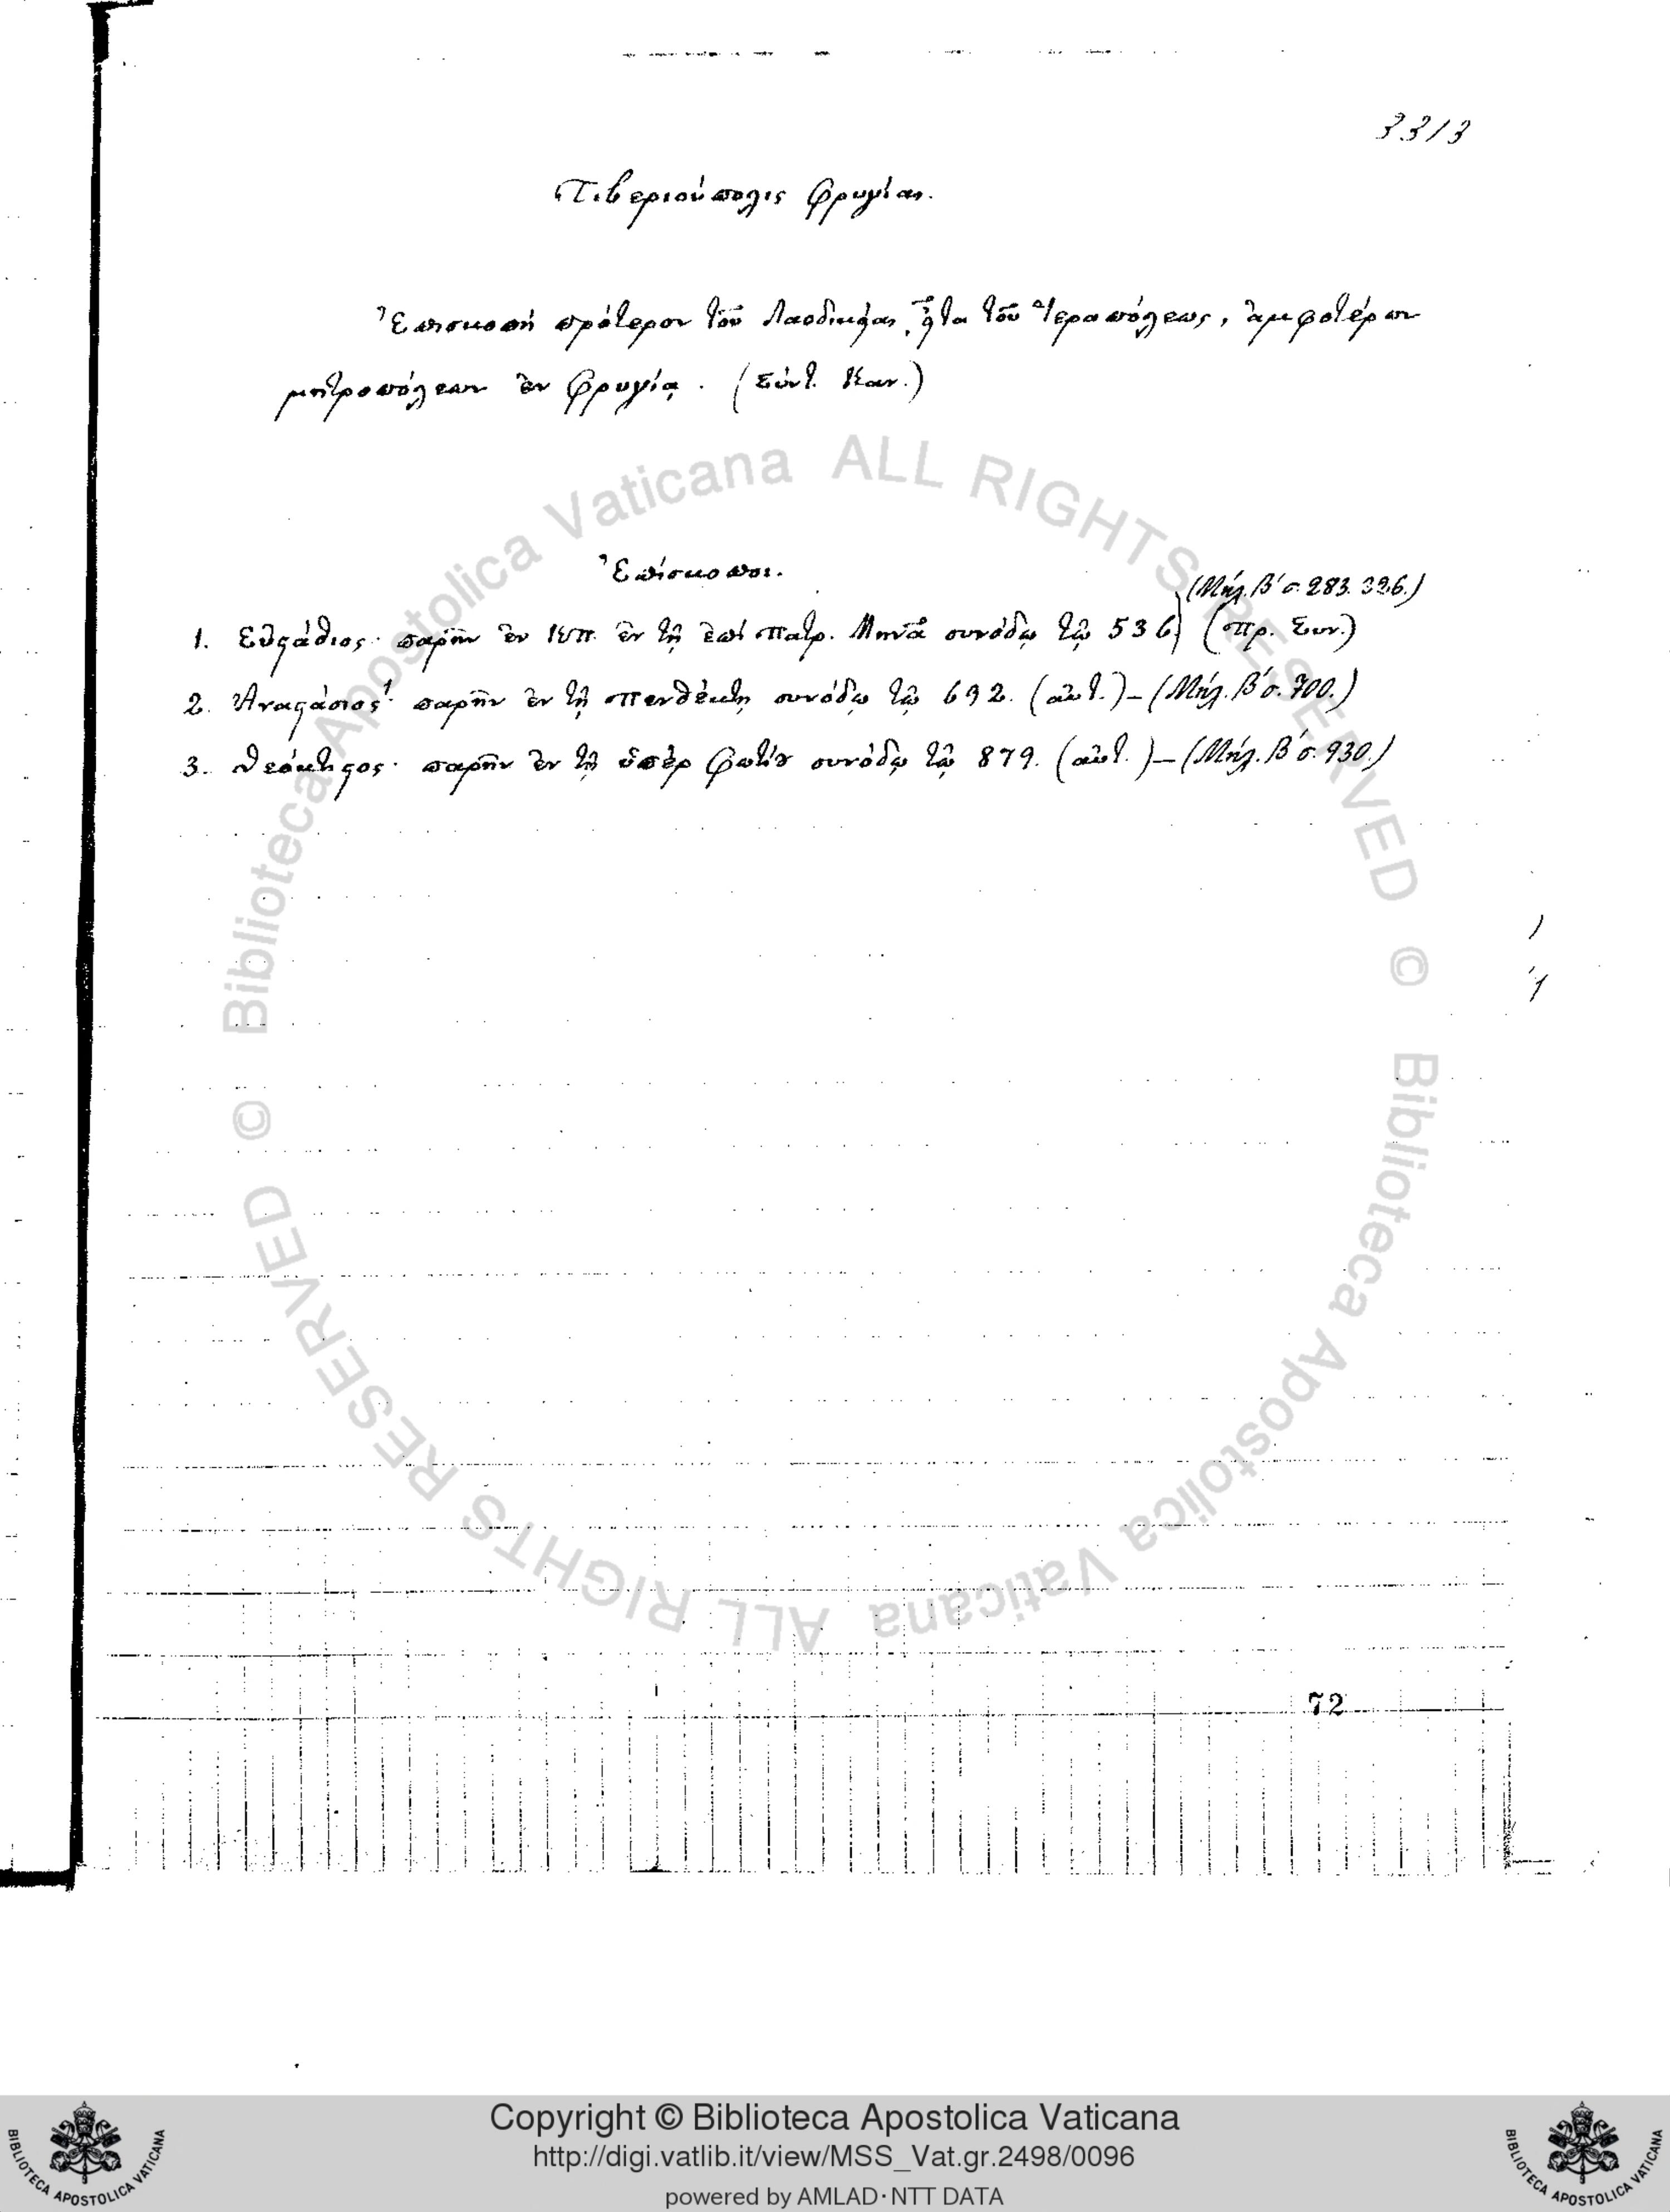 3313
Τιβεριούπολις Φρυγίας.
Ἐπισκοπὴ πρότερον τοῦ Λαοδικείας, εἶτα τοῦ Ἱεραπόλεως, ἀμφοτέρων
μητροπόλεων ἐν Φρυγίᾳ. (Σύντ. Καν.)
Ἐπίσκοποι.
(Μήλ. Β΄ σ. 283. 326.)
1. Εὐστάθιος· παρῆν ἐν Κπ. ἐν τῇ ἐπὶ πατρ. Μηνᾶ συνόδῳ τῷ 536 (πρ. Συν.)
2. Ἀναστάσιος· παρῆν ἐν τῇ πενθέκτῃ συνόδῳ τῷ 692. (αὐτ.) – (Μήλ. Β΄ σ. 700.)
3. Θεόκτιστος· παρῆν ἐν τῇ ὑπὲρ Φωτίου συνόδῳ τῷ 879. (αὐτ.) – (Μήλ. Β΄ σ. 930.)
72
© Biblioteca Apostolica Vaticana ALL RIGHTS RESERVED
© Biblioteca Apostolica Vaticana ALL RIGHTS RESERVED
BIBLIOTECA APOSTOLICA VATICANA
Copyright © Biblioteca Apostolica Vaticana
http://digi.vatlib.it/view/MSS_Vat.gr.2498/0096
powered by AMLAD·NTT DATA
BIBLIOTECA APOSTOLICA VATICANA